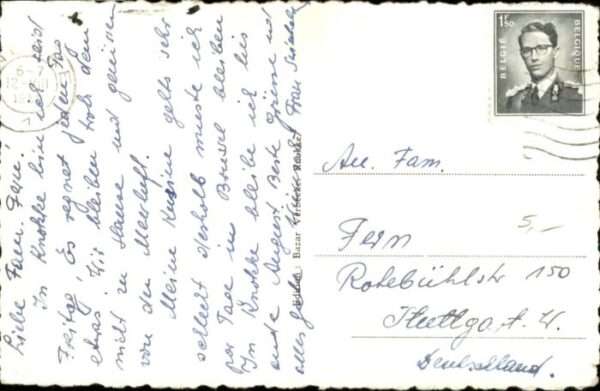 Liebe Fam. Fern.
In Knokke bin ich seit
Freitag. Es regnet jeden Tag
etwas. Wir bleiben trotz dem
nicht zu Hause und genissen
von der Meerluft.
Meine Kusine geht's sehr
schlecht deshalb musste ich
par Tage in Brussel bleiben
In Knokke bleibe ich bis
ende August. Beste Grüsse und
alles gute
Frau
Edition : Bazar
1F50
BELGIE
BELGIQUE
An. Fam.
5,-
Fern
Rotebühlstr 150
Stuttgart. W.
Deutschland.